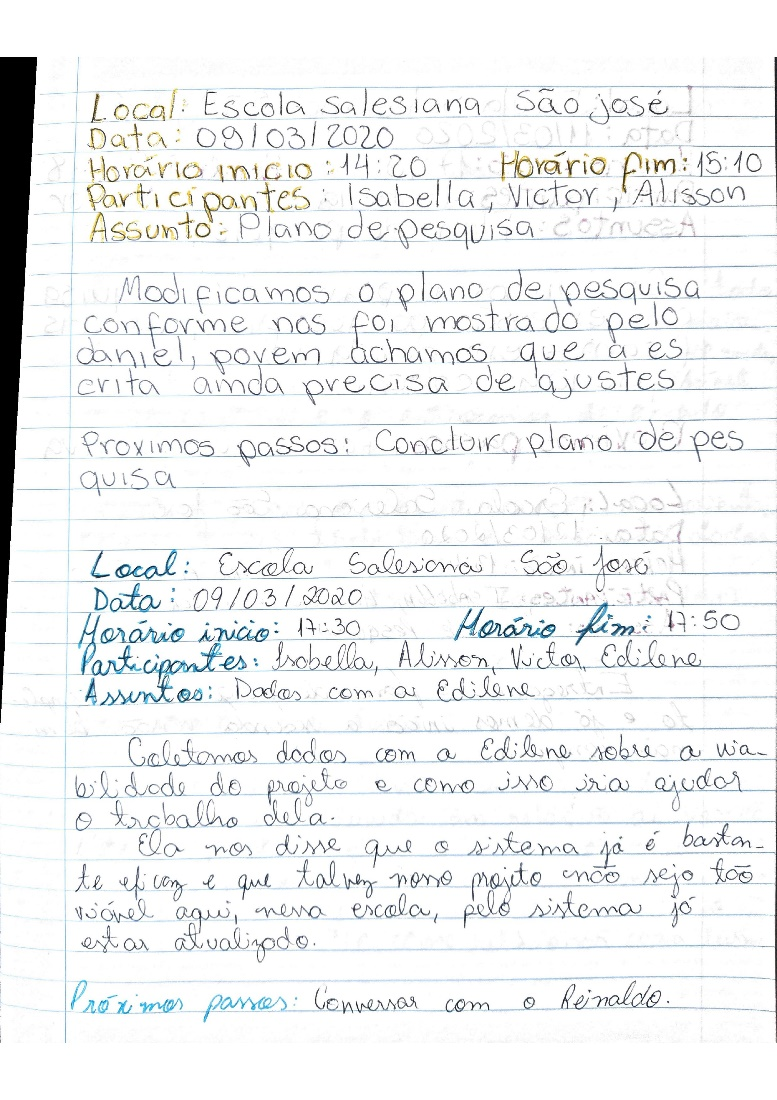 Local: Escola Salesiana São josé
Data: 09/03/2020
Horário inicio: 14:20 Horário fim: 15:10
Participantes: Isabella, Victor, Alisson
Assunto: Plano de pesquisa
Modificamos o plano de pesquisa
conforme nos foi mostrado pelo
daniel, porem achamos que a es
crita ainda precisa de ajustes
Proximos passos: Concluir plano de pes
quisa
Local: Escola Salesiana São José
Data: 09/03/2020
Horário inicio: 17:30 Horário fim: 17:50
Participantes: Isabella, Alisson, Victor, Edilene
Assuntos: Dados com a Edilene
Coletamos dados com a Edilene sobre a via-
bilidade do projeto e como isso iria ajudar
o trabalho dela.
Ela nos disse que o sistema já é bastan-
te eficaz e que talvez nosso projeto não seja tão
viável aqui, nessa escola, pelo sistema já
estar atualizado.
Próximos passos: Conversar com o Reinaldo.